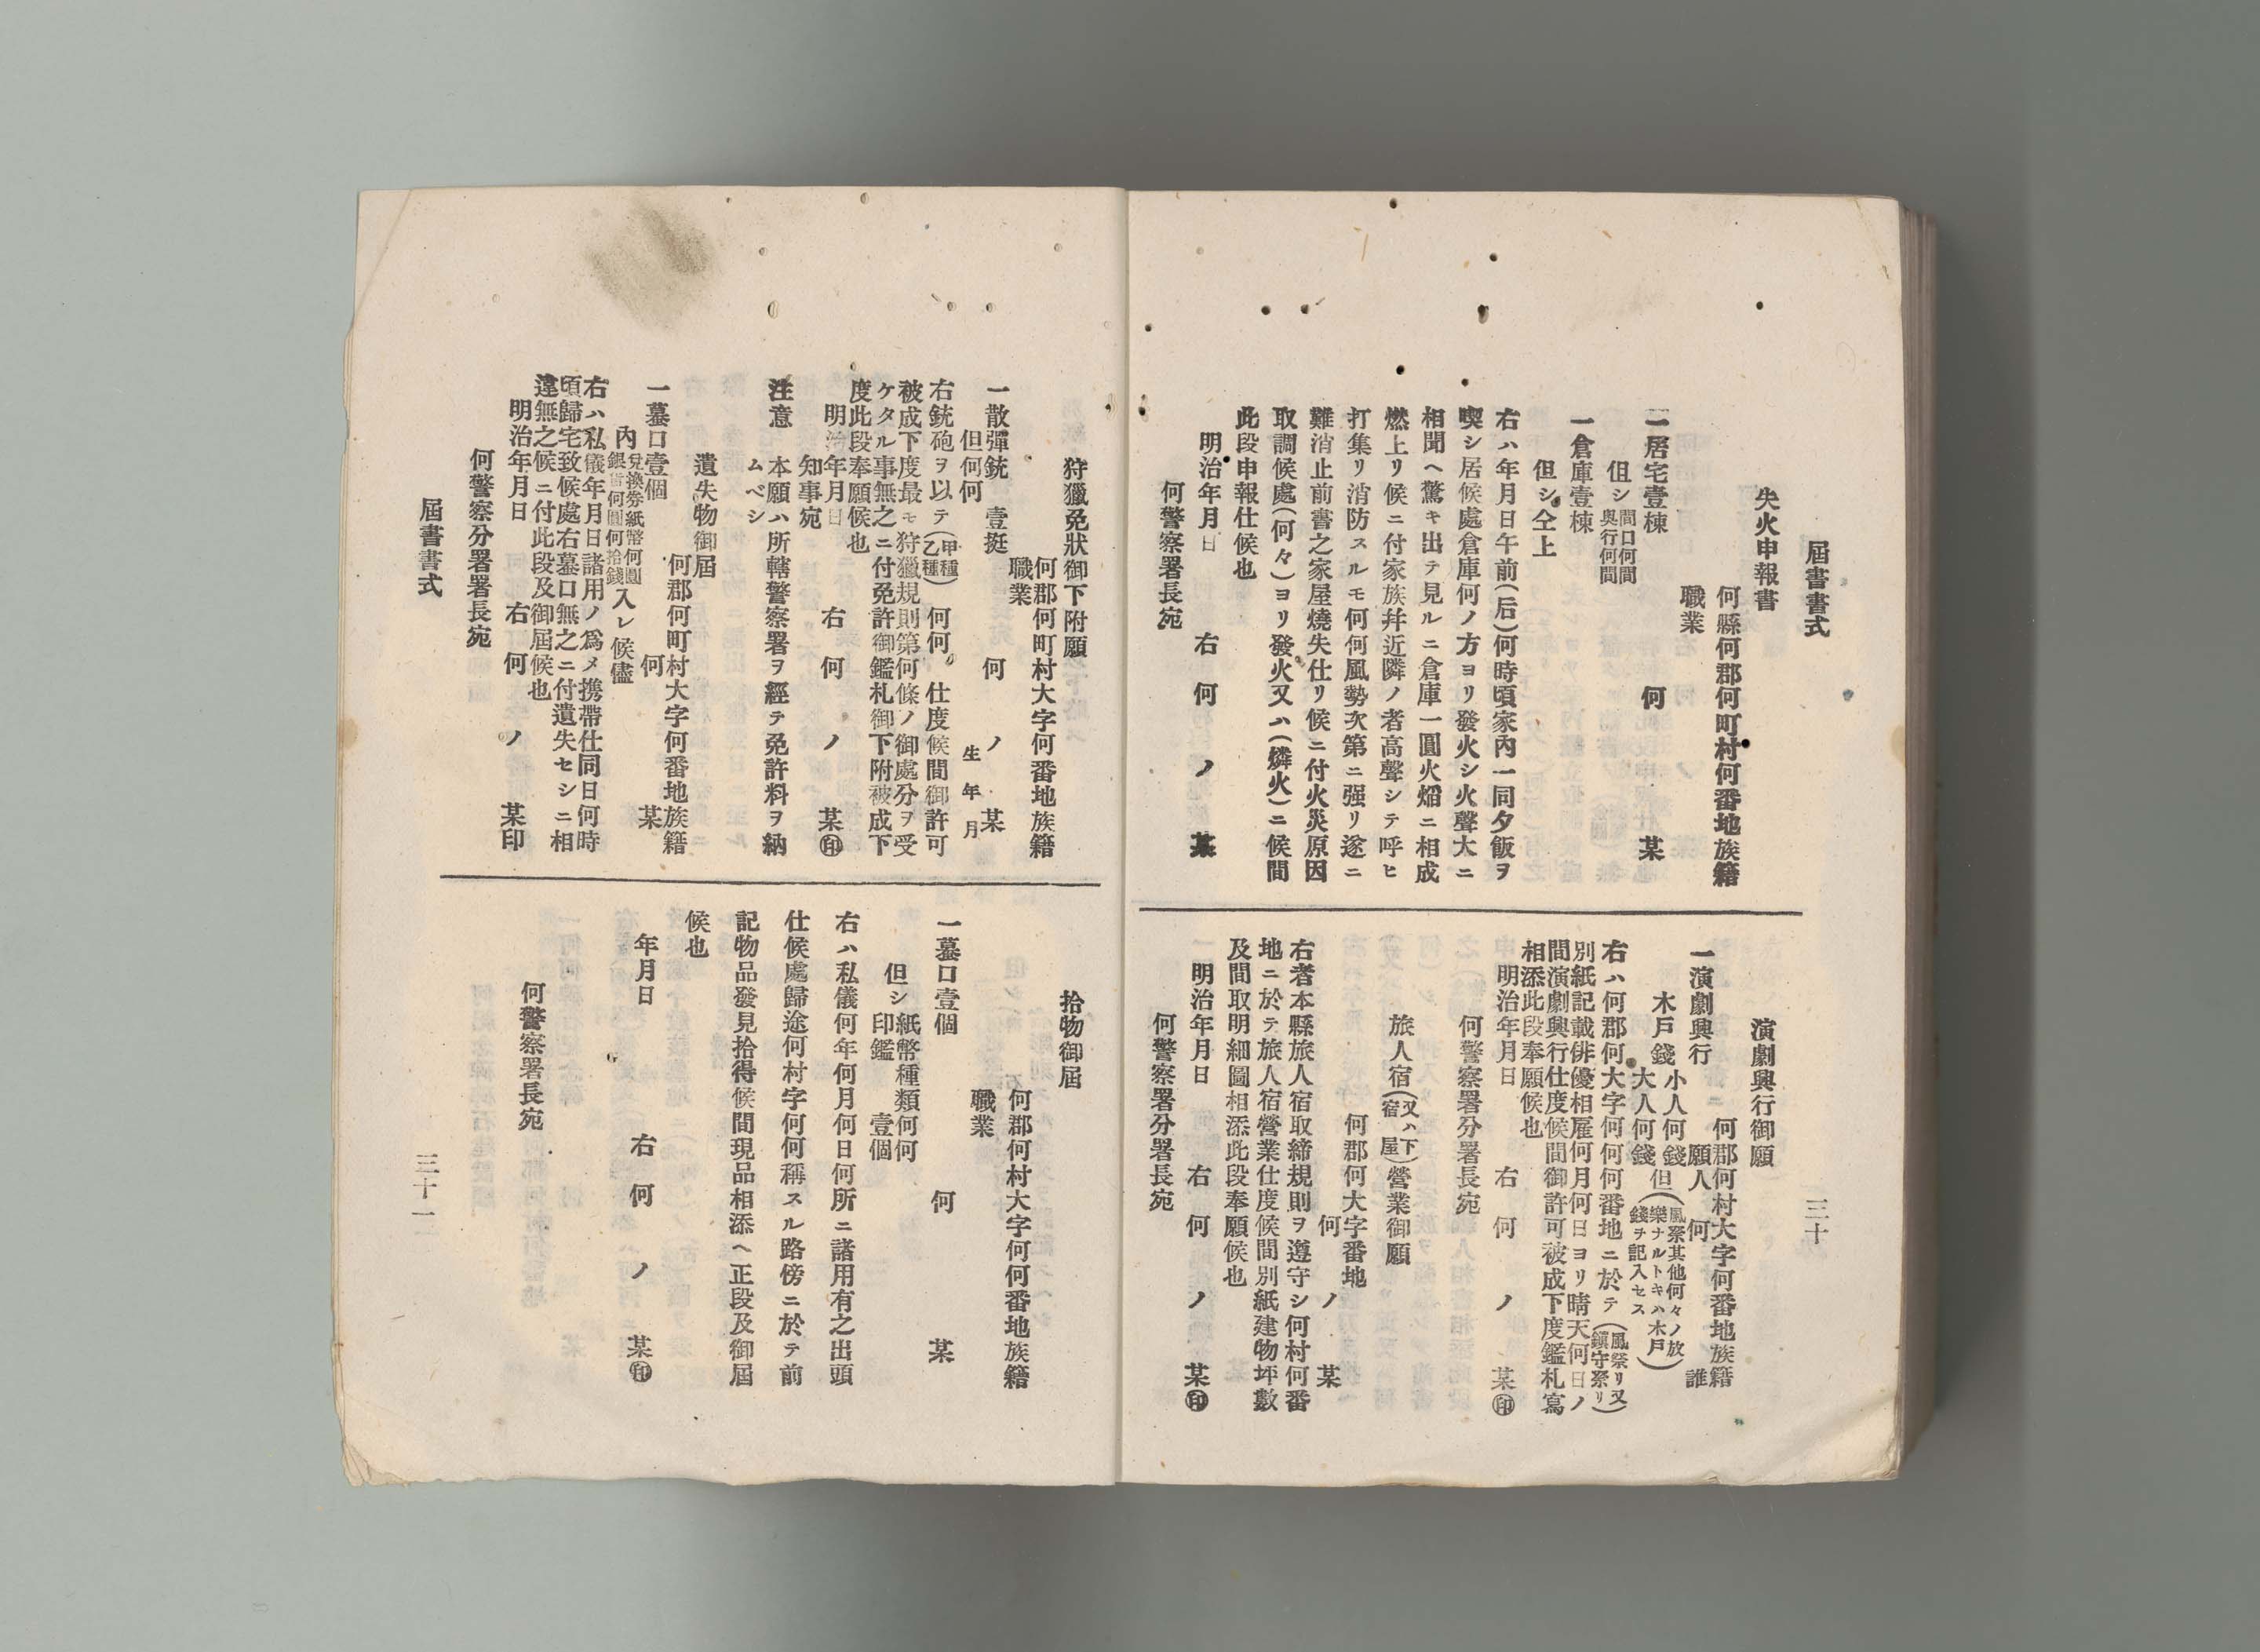 屆書書式
三十
失火申報書
何縣何郡何町村何番地族籍
職業
何 某
一居宅壹棟
但シ間口何間
奧行何間
一倉庫壹棟
但シ仝上
右ハ年月日午前(后)何時頃家內一同夕飯ヲ
喫シ居候處倉庫何ノ方ヨリ發火シ火聲大ニ
相聞ヘ驚キ出テ見ルニ倉庫一圓火焔ニ相成
燃上リ候ニ付家族幷近隣ノ者高聲シテ呼ヒ
打集リ消防スルモ何何風勢次第ニ强リ遂ニ
難消止前書之家屋燒失仕リ候ニ付火災原因
取調候處(何々)ヨリ發火又ハ(燐火)ニ候間
此段申報仕候也
明治年月日
右 何 ノ 某
何警察署長宛
演劇興行御願
何郡何村大字何番地族籍
願人 何 誰
一演劇興行
木戶錢小人何錢
大人何錢
但(風祭其他何々ノ放
樂ナルトキハ木戶
錢ヲ記入セス)
右ハ何郡何大字何何何番地ニ於テ(風祭リ又
鎭守祭リ)
別紙記載俳優相雇何月何日ヨリ晴天何日ノ
間演劇興行仕度候間御許可被成下度鑑札寫
相添此段奉願候也
明治年月日
右 何 ノ 某㊞
何警察署分署長宛
旅人宿(又ハ下
宿屋)營業御願
何郡何大字番地
何 ノ 某
右者本縣旅人宿取締規則ヲ遵守シ何村何番
地ニ於テ旅人宿營業仕度候間別紙建物坪數
及間取明細圖相添此段奉願候也
明治年月日
右 何 ノ 某㊞
何警察署分署長宛
狩獵免狀御下附願
何郡何町村大字何番地族籍
職業
何 ノ 某
生年月
一散彈銃 壹挺
但何何
右銃砲ヲ以テ(甲種
乙種) 何何 仕度候間御許可
被成下度最モ狩獵規則第何條ノ御處分ヲ受
ケタル事無之ニ付免許御鑑札御下附被成下
度此段奉願候也
明治年月日
右 何 ノ 某㊞
知事宛
注意 本願ハ所轄警察署ヲ經テ免許料ヲ納
ムベシ
遺失物御屆
何郡何町村大字何番地族籍
何 某
一蟇口壹個
內兌換券紙幣何圓
銀貨何圓何拾錢入レ候儘
右ハ私儀年月日諸用ノ爲メ携帶仕同日何時
頃歸宅致候處右蟇口無之ニ付遺失セシニ相
違無之候ニ付此段及御屆候也
明治年月日
右 何 ノ 某印
何警察分署署長宛
拾物御屆
何郡何村大字何何番地族籍
職業
何 某
一蟇口壹個
但シ紙幣種類何何
印鑑 壹個
右ハ私儀何年何月何日何所ニ諸用有之出頭
仕候處歸途何村字何何稱スル路傍ニ於テ前
記物品發見拾得候間現品相添ヘ正段及御屆
候也
年月日
右 何 ノ 某㊞
何警察署長宛
屆書書式
三十一